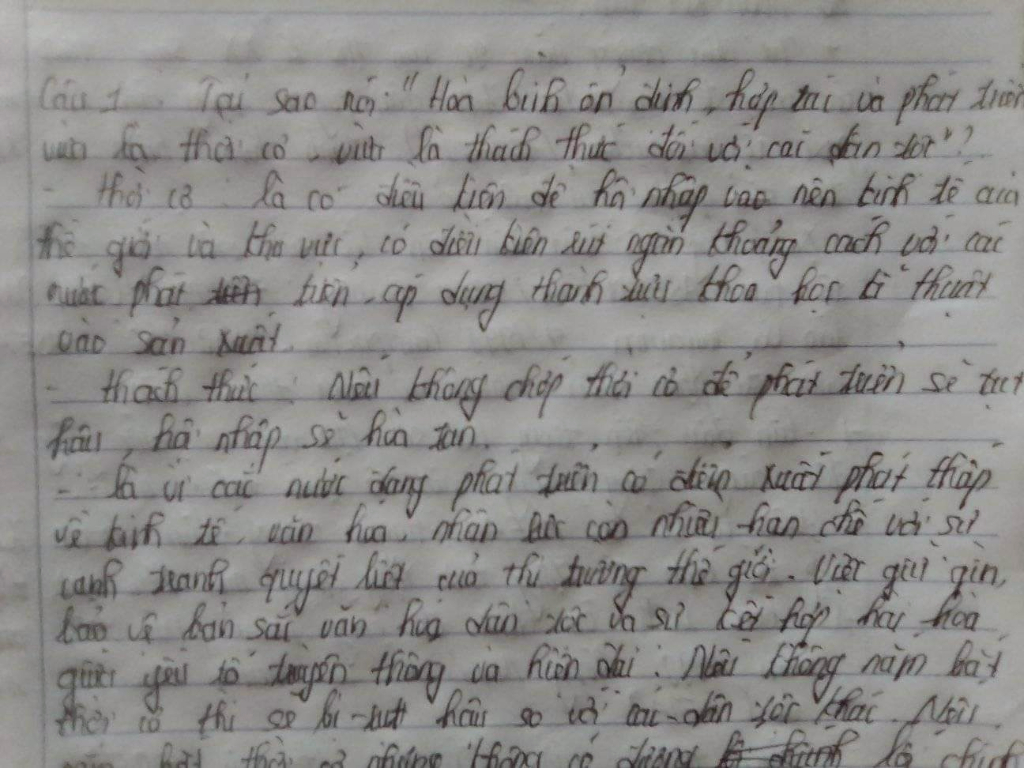 Câu 1 Tại sao nói "Hòa bình ổn định, hợp tác và phát triển
vừa là thời cơ, vừa là thách thức đối với các dân tộc"?
- thời cơ là có điều kiện để hội nhập vào nền kinh tế của
thế giới và khu vực, có điều kiện rút ngắn khoảng cách với các
nước phát triển, áp dụng thành tựu khoa học kĩ thuật
vào sản xuất.
- thách thức: Nếu không chớp thời cơ để phát triển sẽ tụt
hậu, hội nhập sẽ hòa tan.
- là vì các nước đang phát triển có điểm xuất phát thấp
về kinh tế, văn hóa, nhân lực còn nhiều hạn chế với sự
cạnh tranh quyết liệt của thị trường thế giới. Việc giữ gìn,
bảo vệ bản sắc văn hóa dân tộc và sự kết hợp hài hòa
giữa yếu tố truyền thống và hiện đại. Nếu không nắm bắt
thời cơ thì sẽ bị tụt hậu so với các dân tộc khác. Nếu
nắm bắt thời cơ nhưng không có đường chính